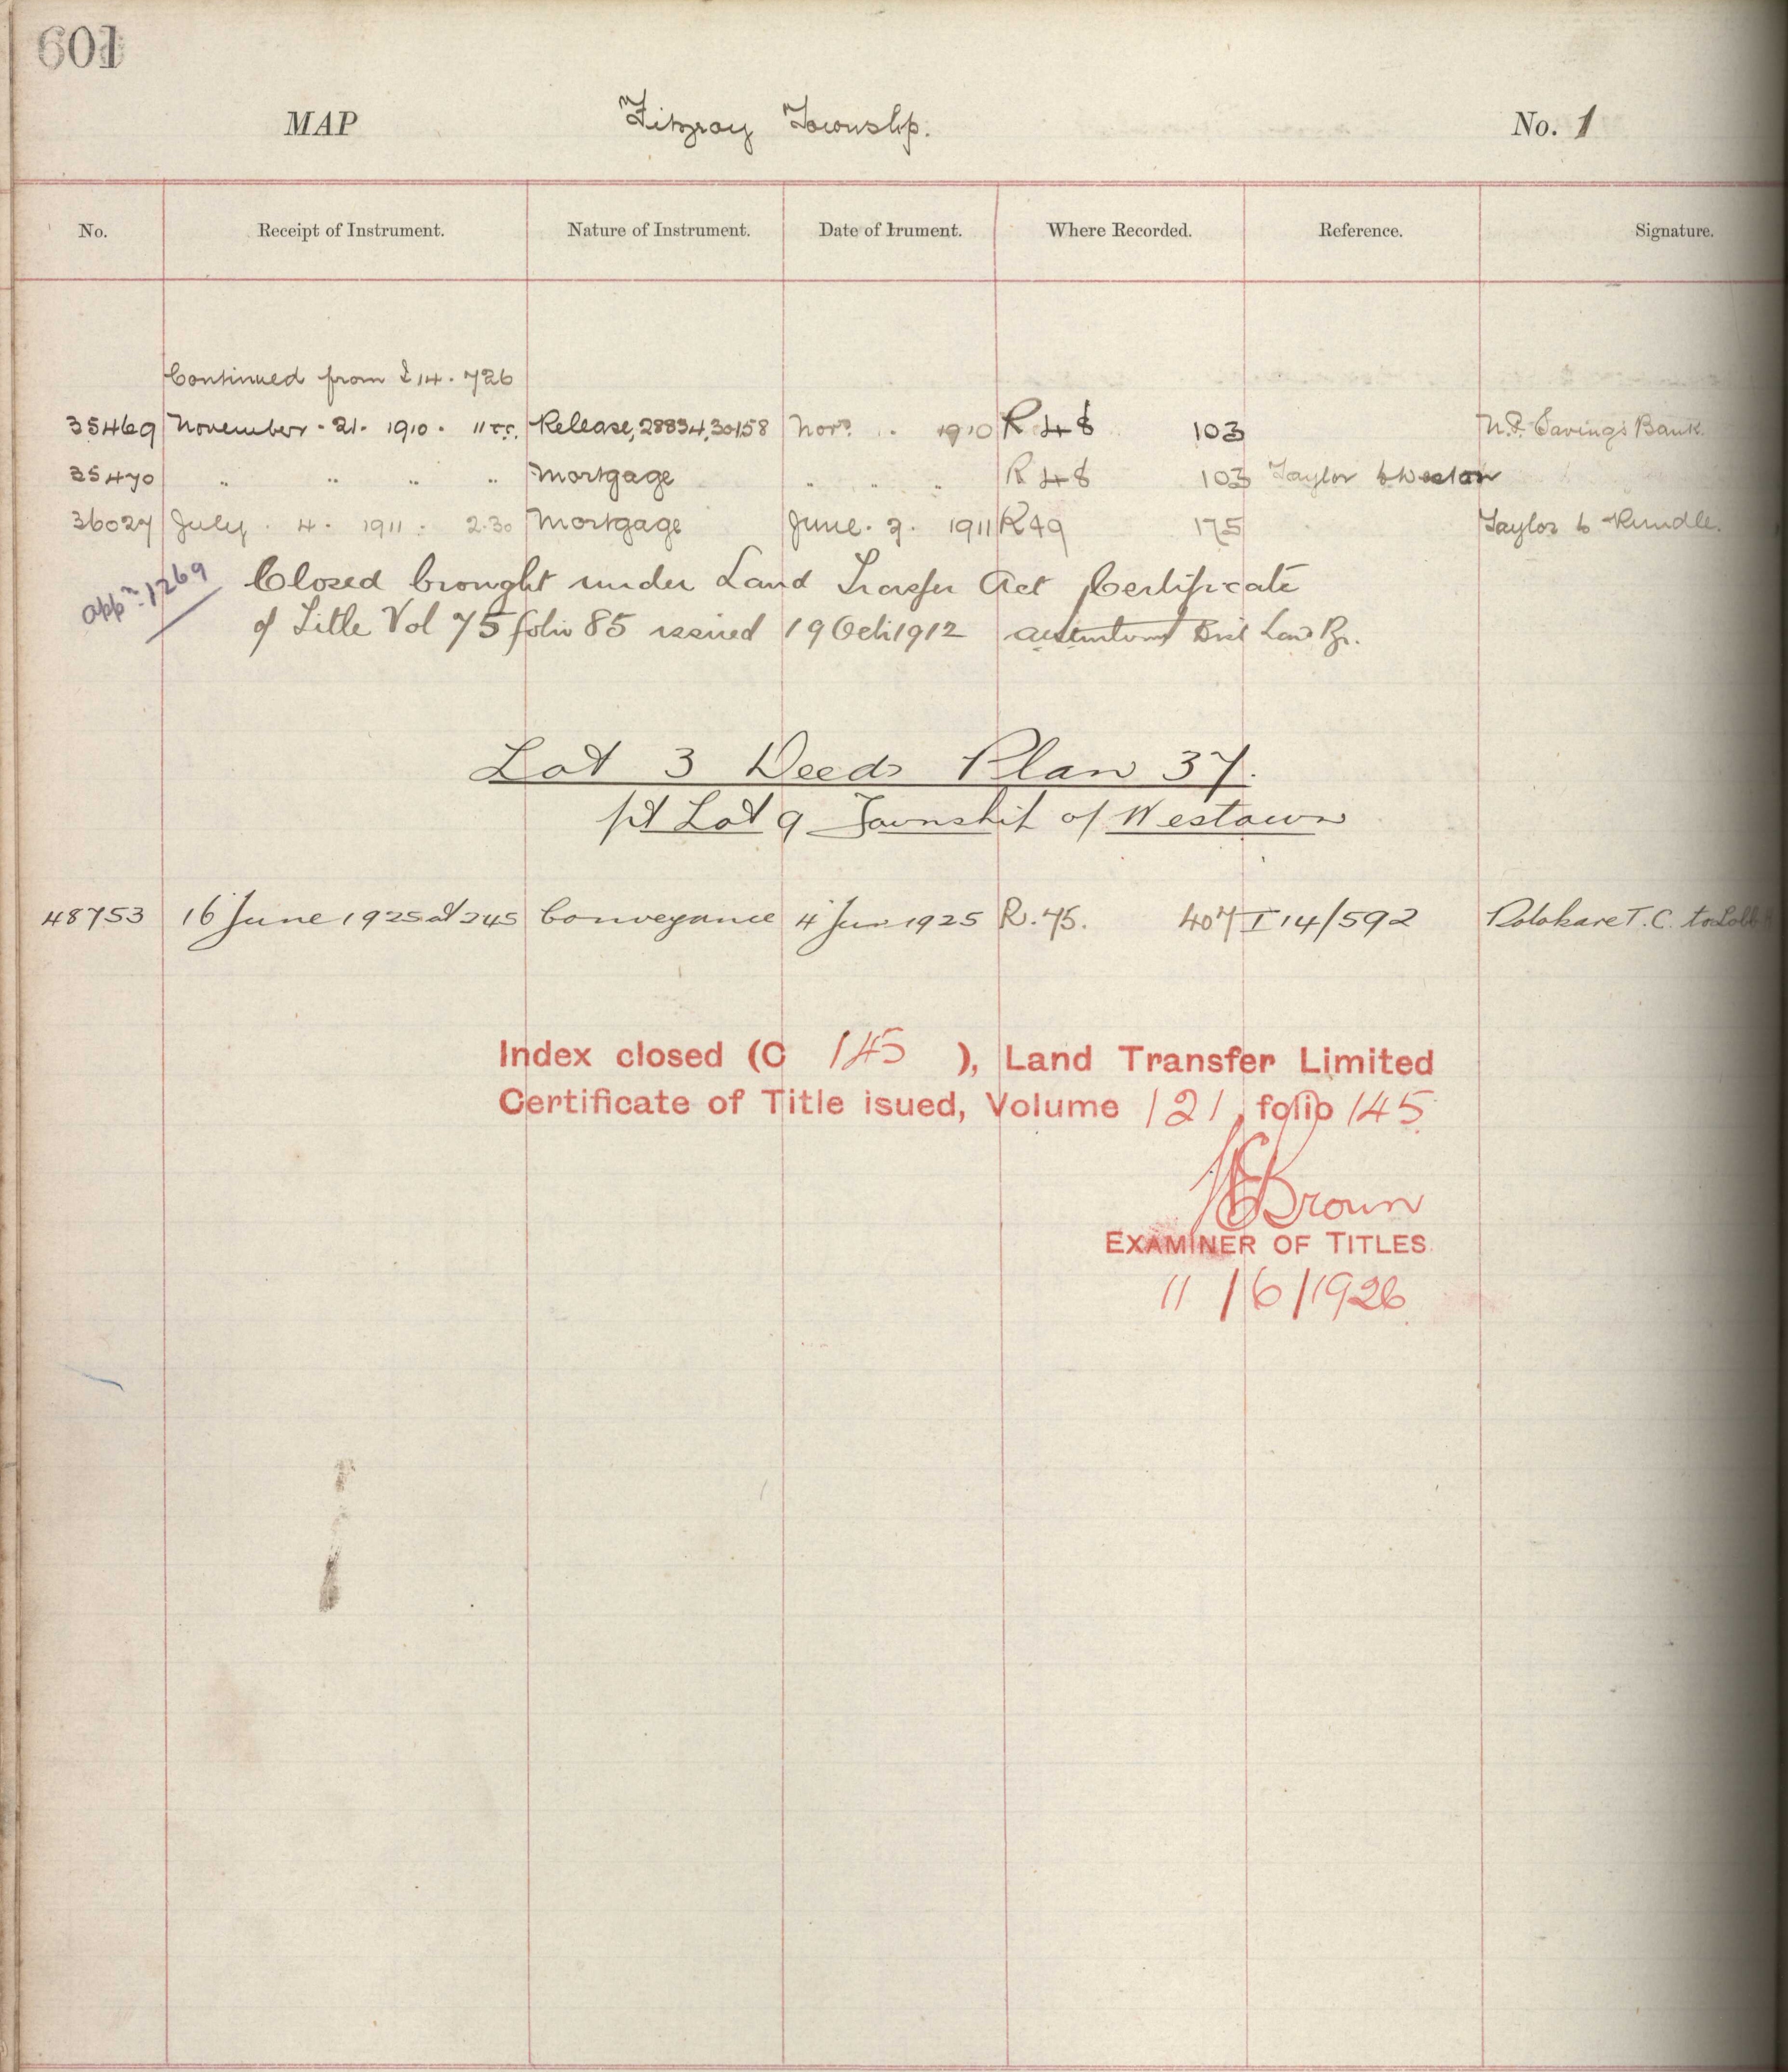 601
MAP Fitzroy Township. No. 1
No. Receipt of Instrument. Nature of Instrument. Date of Irument. Where Recorded. Reference. Signature.
Continued from I 14. 726
35469 November. 21. 1910. 11 Release, 28834, 30158 Nov. .. 1910 R 48 103 N.P. Savings Bank.
35470 .. .. .. .. Mortgage .. .. .. R 48 103 Taylor to Weston
36027 July. 4. 1911. 2.30 Mortgage June. 2. 1911 R49 175 Taylor to Rundle.
Appn. 1269 Closed brought under Land Transfer Act Certificate
of Title Vol 75 folio 85 issued 19 Oct 1912 Dist Land Rgr.
Lot 3 Deeds Plan 37.
pt Lot 9 Township of Westown
48753 16 June 1925 at 245 Conveyance 4 Jun 1925 R. 75. 407 I 14/592 T.C. to
Index closed (C 145 ), Land Transfer Limited
Certificate of Title isued, Volume 121, folio 145
Brown
EXAMINER OF TITLES.
11/6/1926